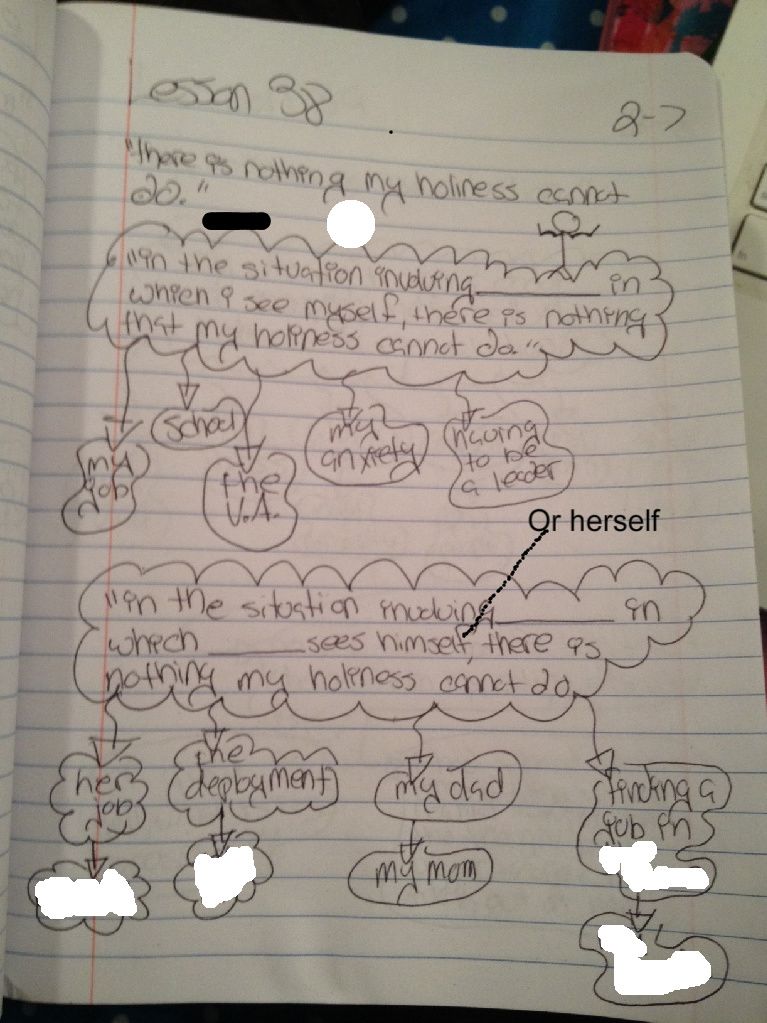 Lesson 38
2-7
"there is nothing my holiness cannot
do."
"in the situation involving ________ in
which i see myself, there is nothing
that my holiness cannot do."
my
job
school
the
V.A.
my
anxiety
having
to be
a leader
Or herself
"in the situation involving ________ in
which ______ sees himself, there is
nothing my holiness cannot do
her
job
the
deployment
my dad
my mom
finding a
job in